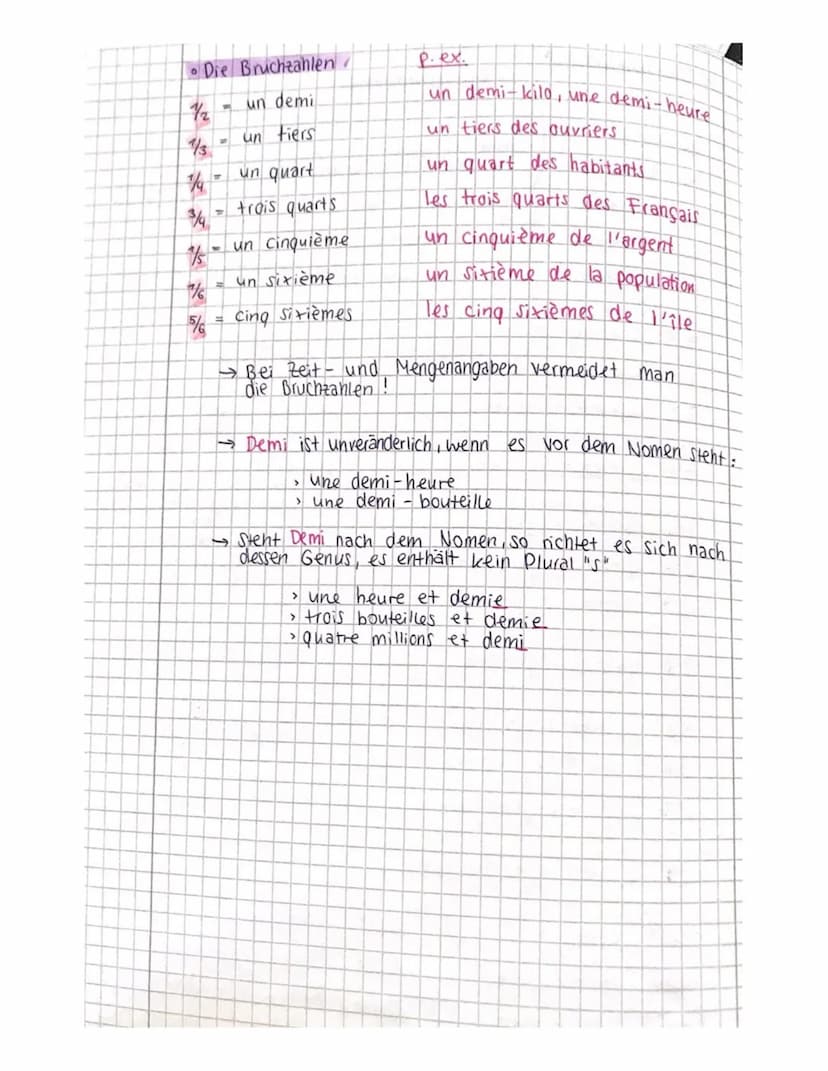 • Die Bruchzahlen p.ex.
1/2 = un demi un demi-kilo, une demi-heure
1/3 = un tiers un tiers des ouvriers
1/4 = un quart un quart des habitants
3/4 = trois quarts les trois quarts des Français
1/5 = un cinquième un cinquième de l'argent
1/6 = un sixième un sixième de la population
5/6 = cinq sixièmes les cinq sixièmes de l'île
→ Bei Zeit- und Mengenangaben vermeidet man
die Bruchzahlen!
→ Demi ist unveränderlich, wenn es vor dem Nomen steht:
› une demi-heure
› une demi-bouteille
→ Steht Demi nach dem Nomen, so richtet es sich nach
dessen Genus, es enthält kein Plural "s"
› une heure et demie
› trois bouteilles et demie
› quatre millions et demi